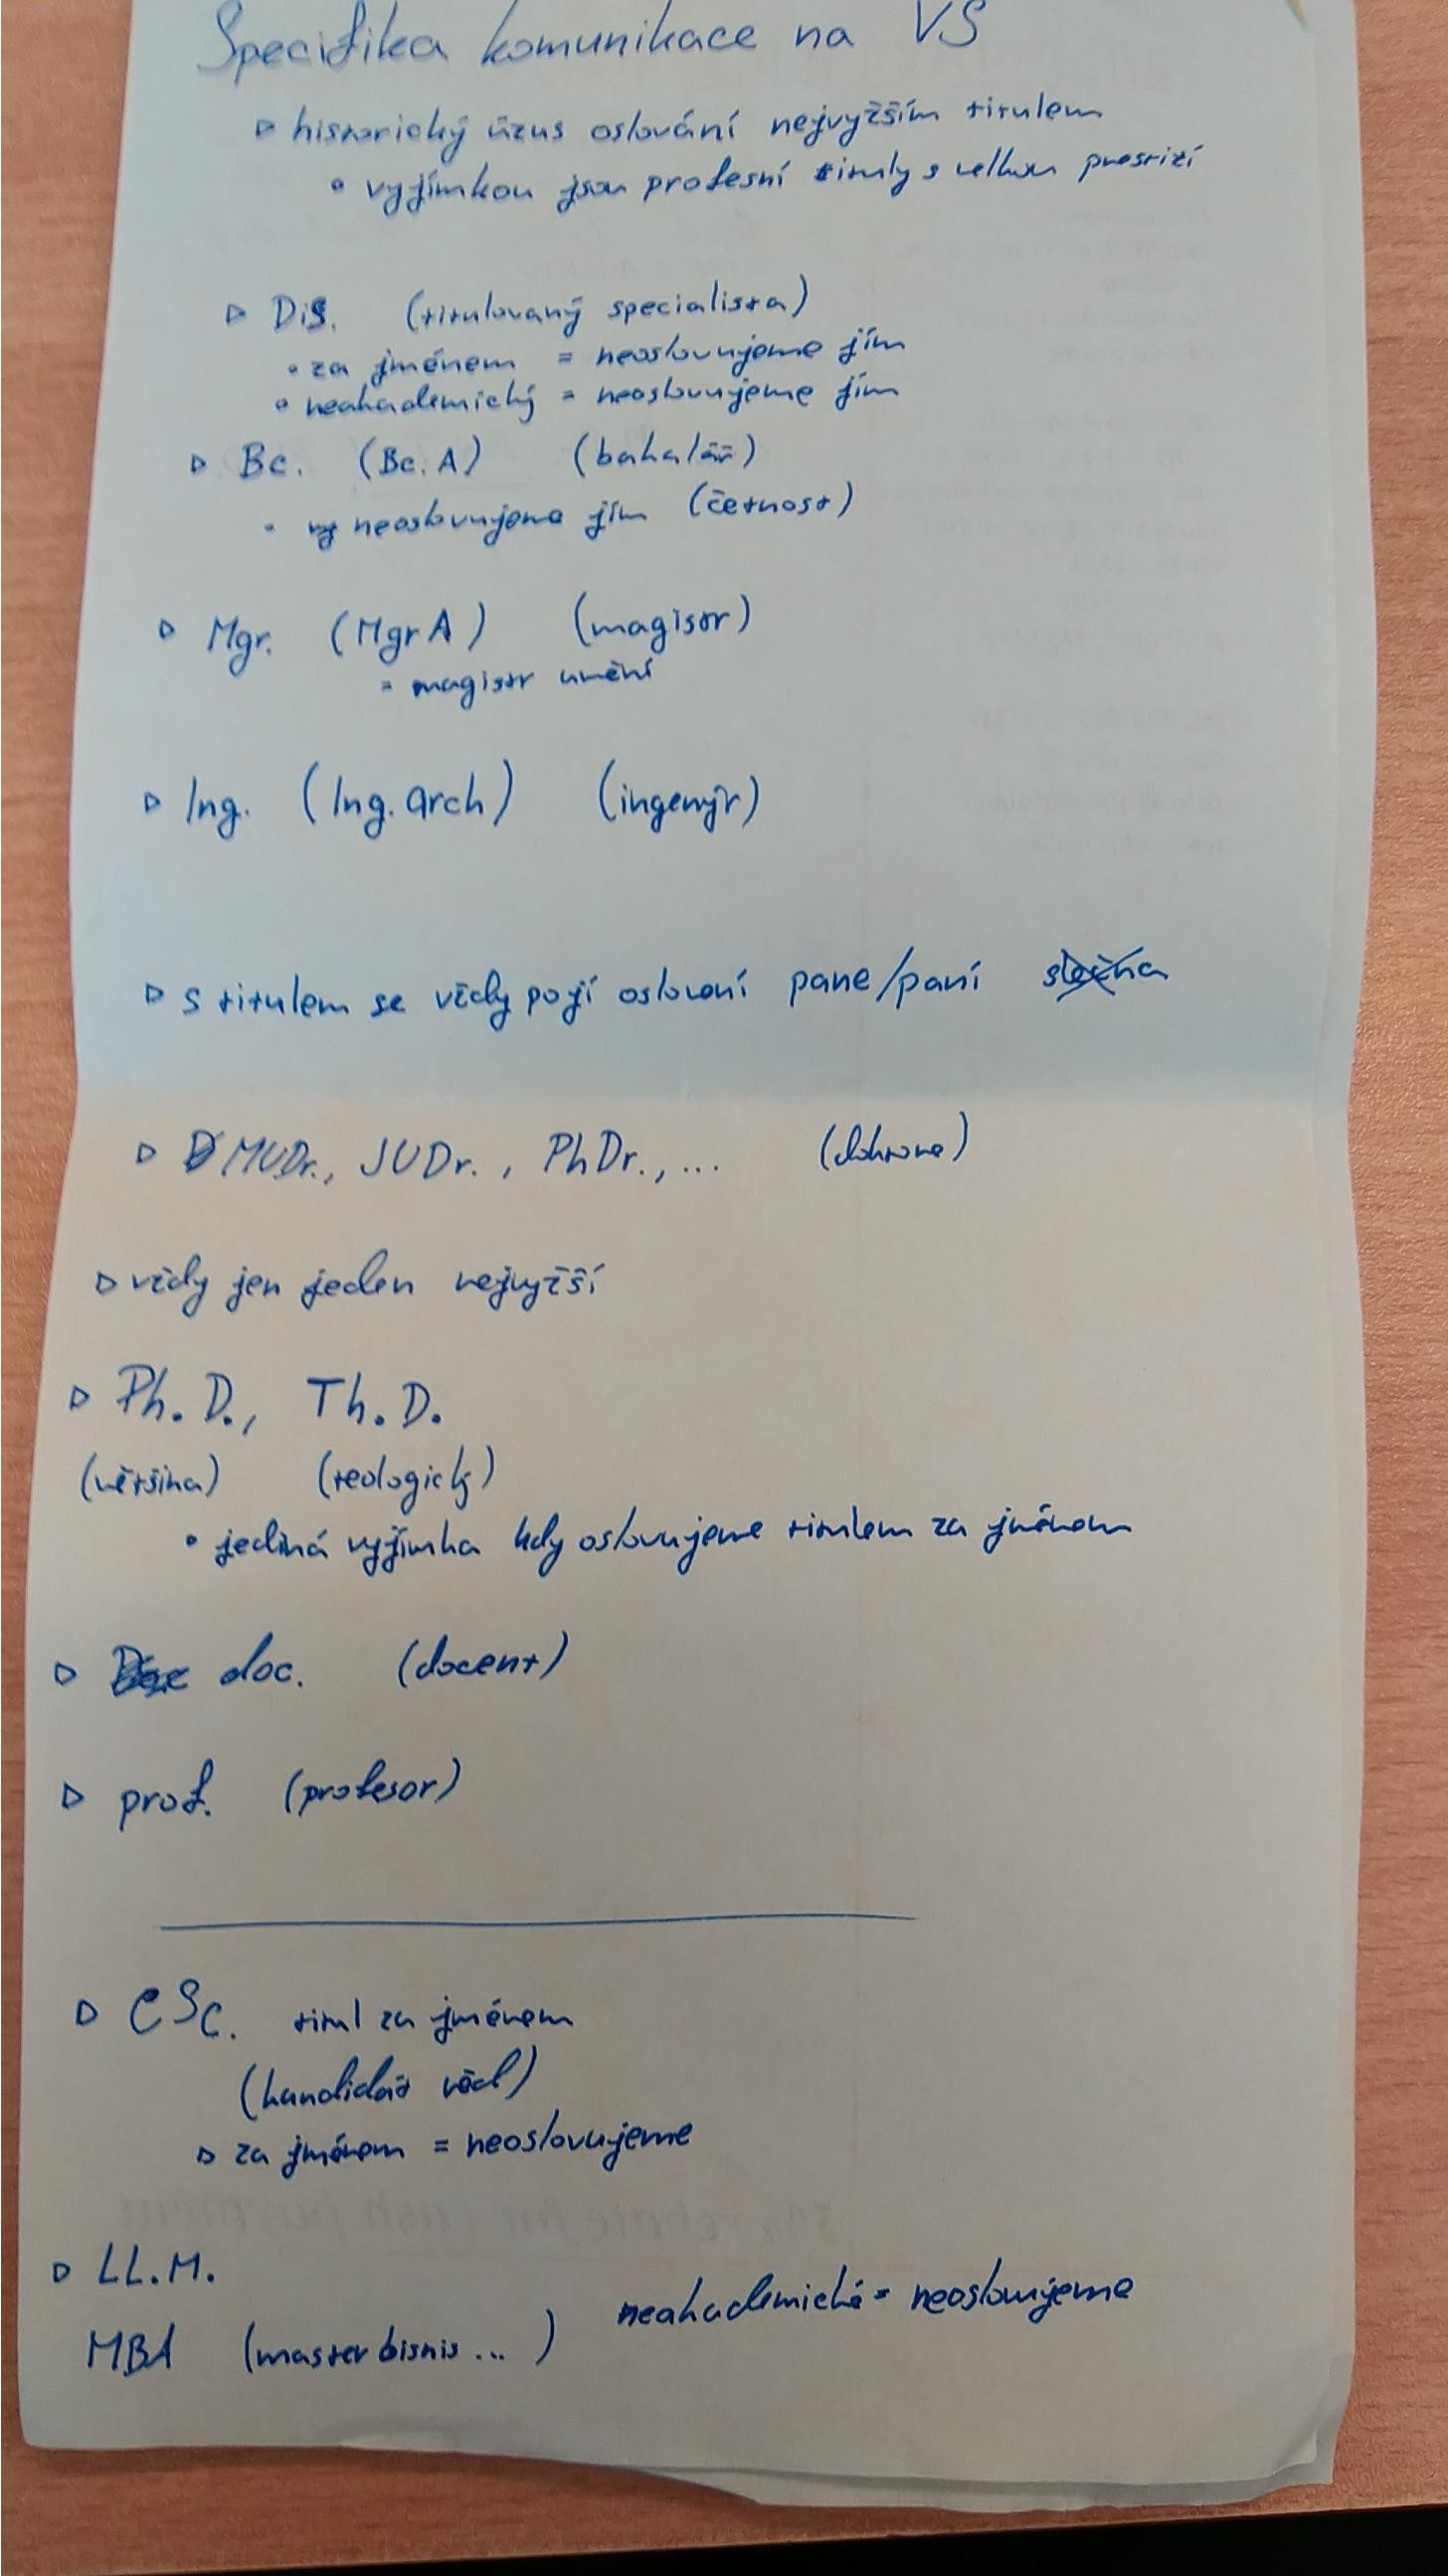 Specifika komunikace na VŠ
▹ historický úzus oslování nejvyžším titulem
• vyjímkou jsou profesní tituly s velkou prestiží
▹ Dis. (titulovaný specialista)
• za jménem = neoslovujeme jím
• neakademický = neoslovujeme jím
▹ Bc. (Bc. A) (bakalář)
• neoslovujeme jím (četnost)
▹ Mgr. (MgrA) (magistr)
= magistr umění
▹ Ing. (Ing. arch) (ingenýr)
▹ s titulem se vždy pojí oslovení pane/paní slečna
▹ MUDr., JUDr., PhDr., ... (doktore)
▹ vždy jen jeden nejvyžší
▹ Ph.D., Th.D.
(většina) (teologický)
• jediná vyjímka kdy oslovujeme titulem za jménem
▹ doc. (docent)
▹ prof. (profesor)
▹ CSc. titul za jménem
(kandidát věd)
▹ za jménem = neoslovujeme
▹ LL.M.
MBA (master bisnis ... ) neakademické = neoslovujeme